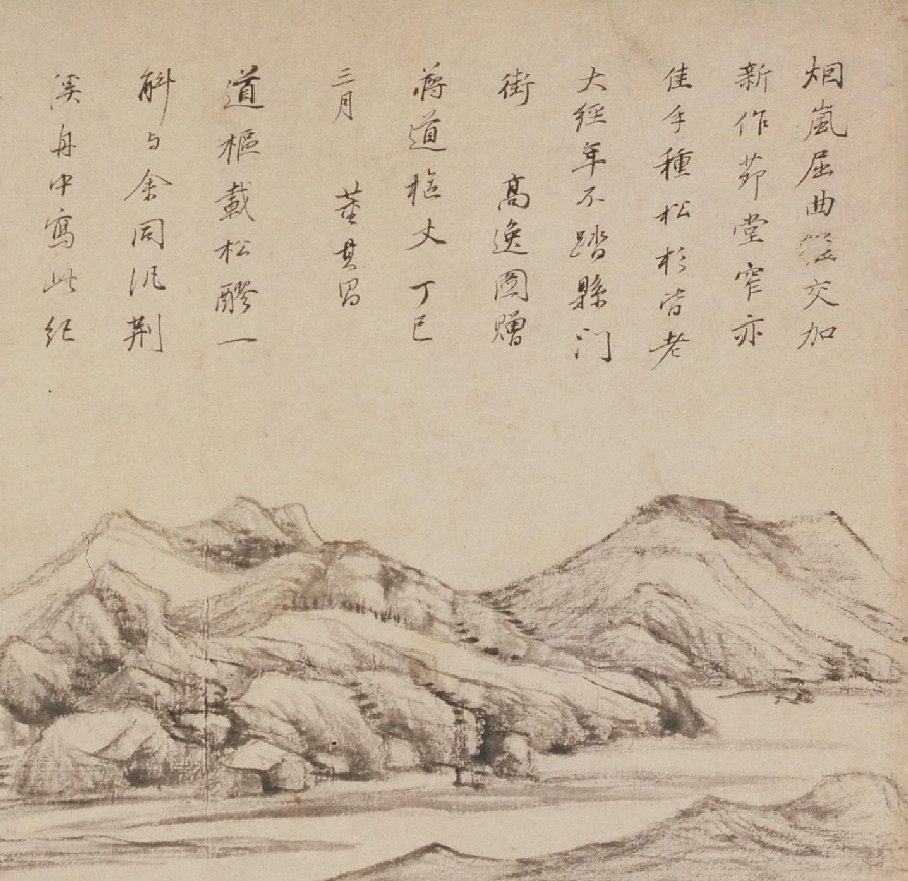 烟嵐屈曲交加
新作茆堂窄亦
佳手種松杉皆老
大經年不踏縣门
街 高逸圖贈
蔣道樞丈 丁巳
三月 董其昌
道樞載松醪一
斛与余同汎荆
溪舟中寫此紀